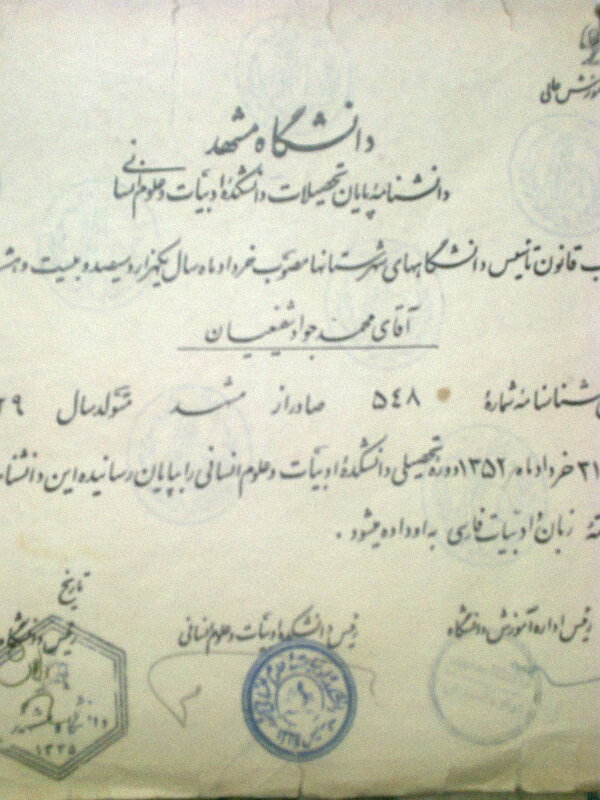 آموزش عالی
دانشگاه مشهد
دانشنامه پایان تحصیلات دانشکده ادبیات و علوم انسانی
قانون تأسیس دانشگاههای شهرستانها مصوب خرداد ماه سال یکهزار و سیصد و بیست و هشت
آقای محمد جواد شفیعیان
شناسنامه شماره ۵۴۸ صادر از مشهد متولد سال ۲۹
۳۱ خرداد ماه ۱۳۵۲ دوره تحصیلی دانشکده ادبیات و علوم انسانی را بپایان رسانیده این دانشنامه
زبان و ادبیات فارسی به او داده میشود .
تاریخ
رئیس اداره آموزش دانشگاه رئیس دانشکده ادبیات و علوم انسانی رئیس دانشگاه
دانشگاه مشهد
۱۳۳۵